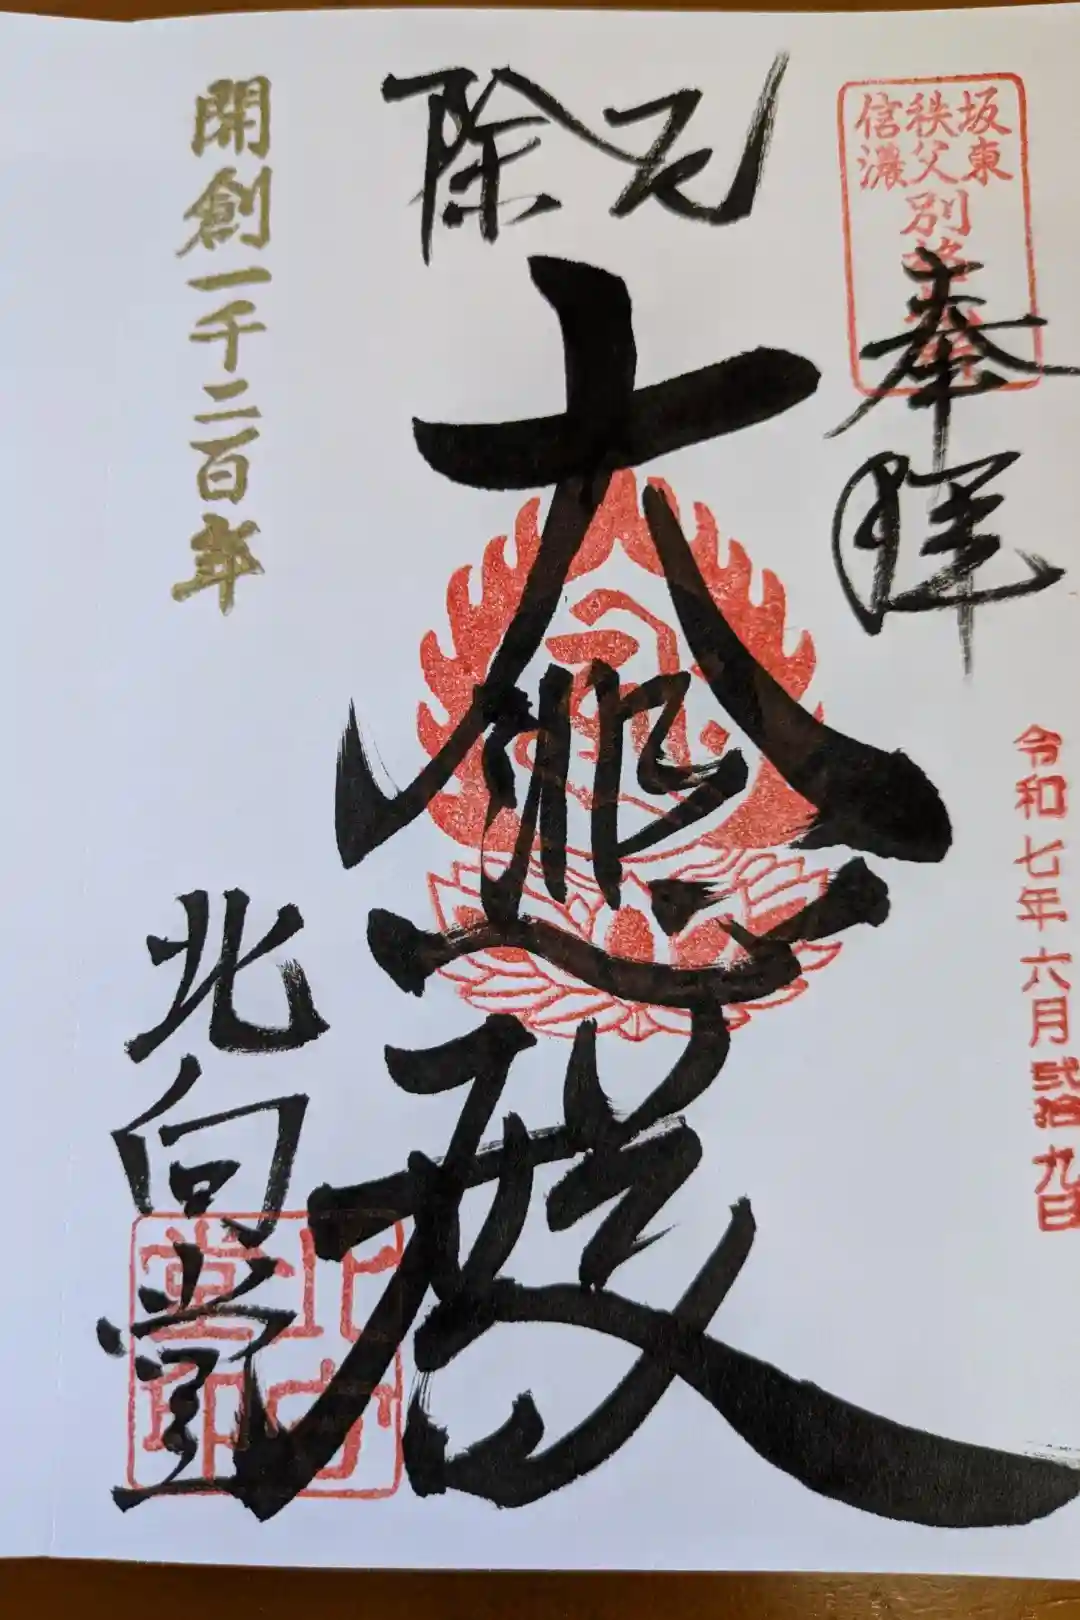 坂東
秩父
信濃
別格
奉拝
令和七年六月弐拾九日
厄除
大悲殿
開創一千二百年
北向堂
北向
堂印